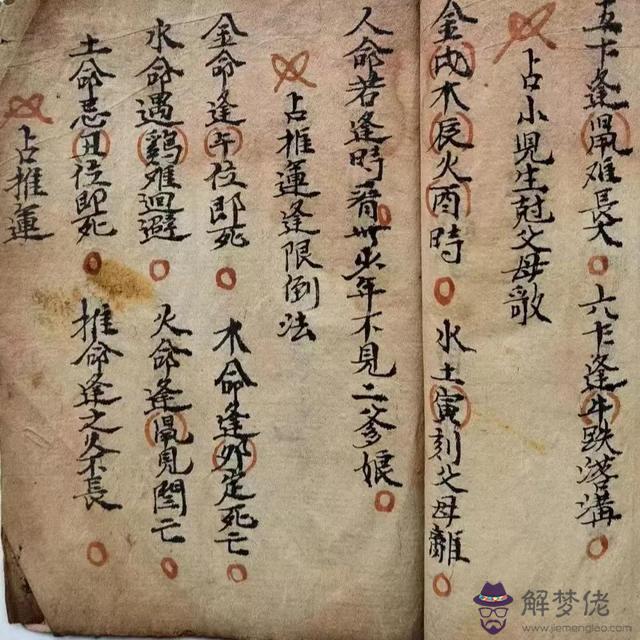 逢鼠难長大 六卞逢牛跌溝
占小児生尅父母歌
金戌木辰火酉時 水土寅刻父母離
人命若逢時着此少年不見二爹娘
占推運逢限倒法
金命逢午位即死 木命逢卯定死亡
水命遇鷄难迴避 火命逢鼠見閻亡
土命忌位即死 推命逢之不長
占推運
解梦佬
www.jiemenglao.com